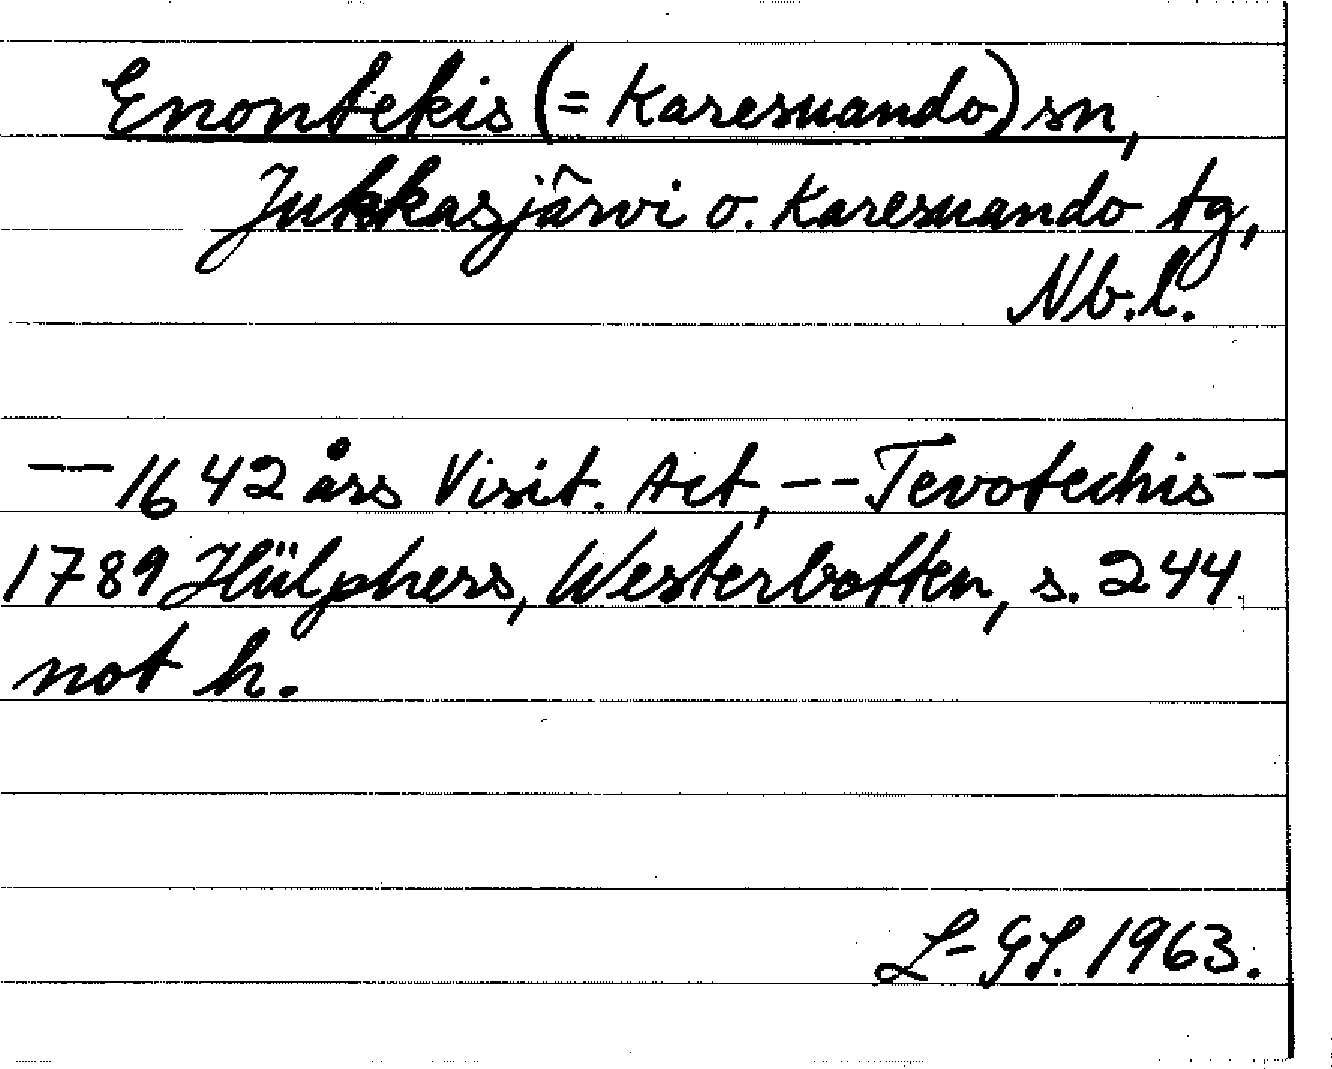 Enontekis (= Karesuando) sn,
Jukkasjärvi o. Karesuando tg,
Nb.l.
— 1642 års Visit. Act, -- Tevotechis --
1789 Hülphers, Westerbotten, s. 244
not h.
L-GL. 1963.